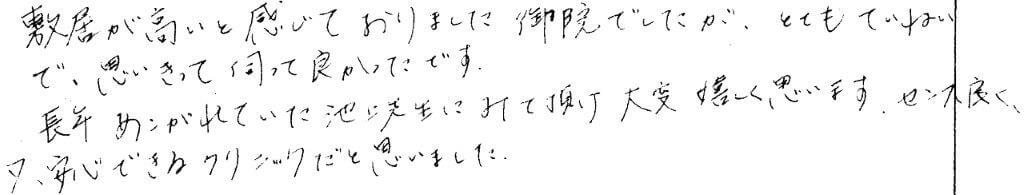 敷居が高いと感じておりました御院でしたが、とてもていねい
で、思いきって伺って良かったです.
長年あこがれていた池先生にみて頂け大変嬉しく思います. センス良く、
又、安心できるクリニックだと思いました.